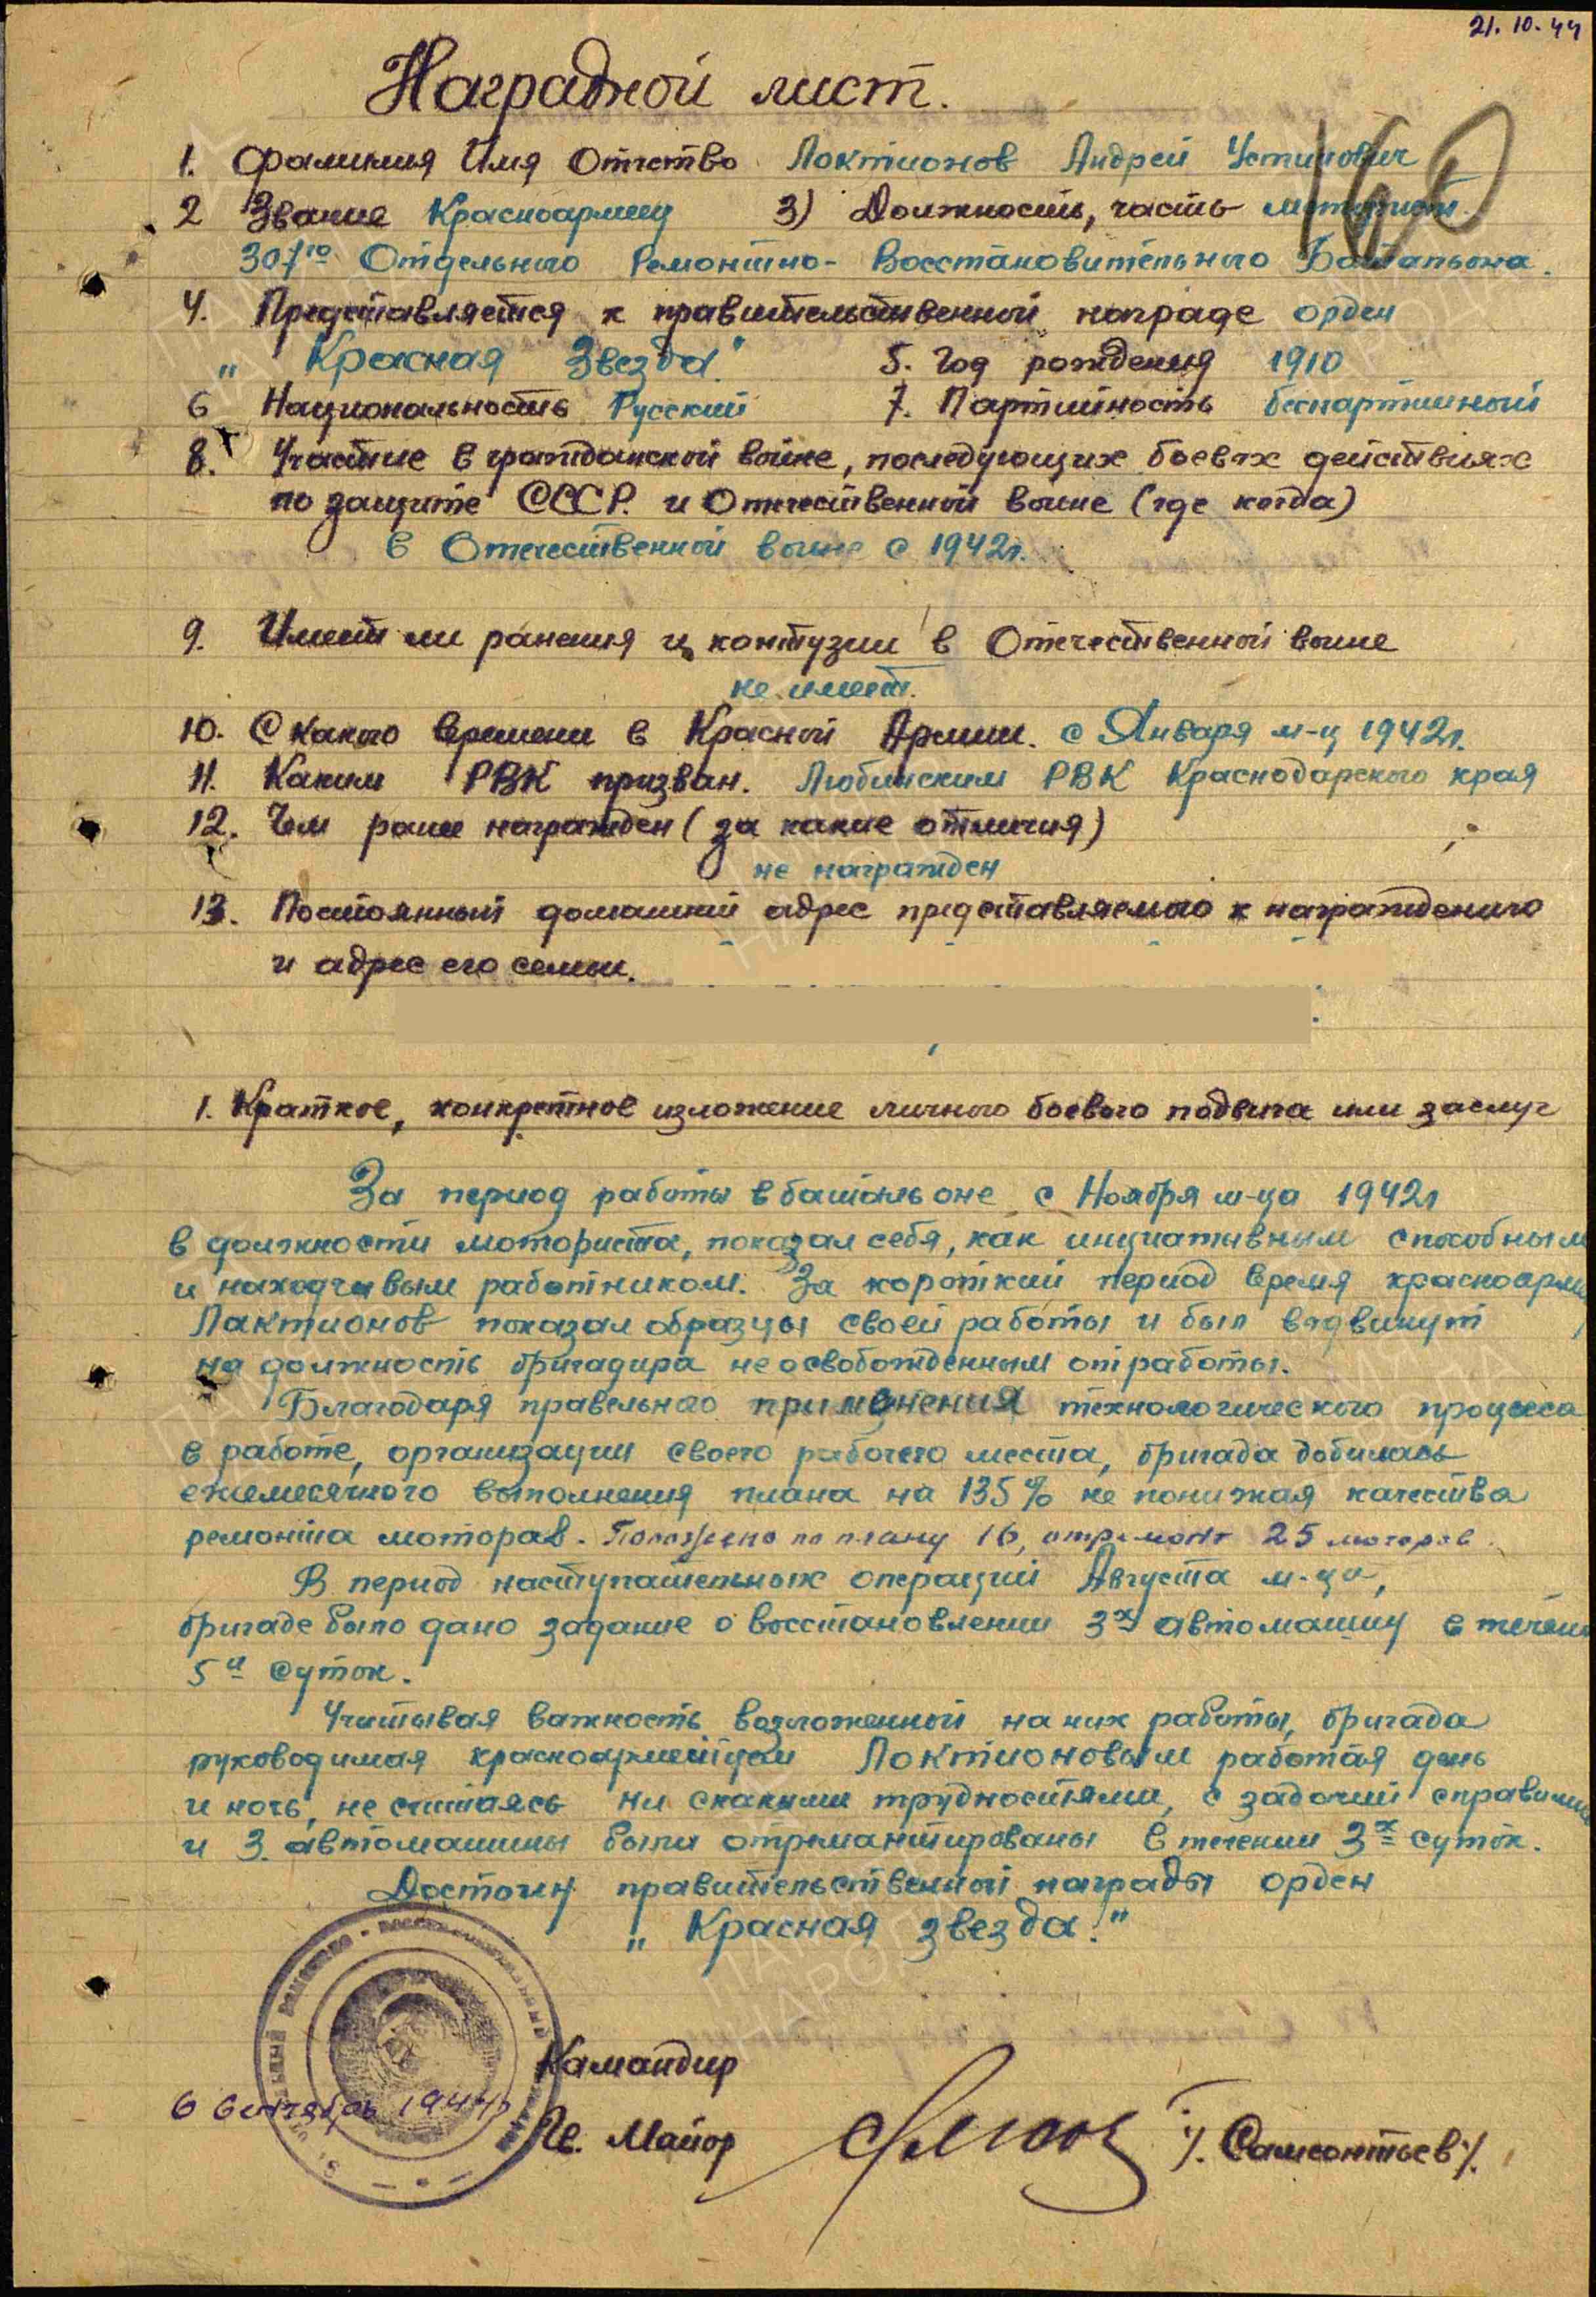 21.10.44
Наградной лист.
160
1. Фамилия Имя Отчество Локтионов Андрей Устинович
2 Звание Красноармеец 3) Должность, часть моторист
307го Отдельного Ремонтно-Восстановительного Батальона.
4. Представляется к правительственной награде орден
„Красная Звезда" 5. Год рождения 1910
6 Национальность Русский 7. Партийность беспартийный
8. Участие в гражданской войне, последующих боевых действиях
по защите СССР. и Отечественной войне (где когда)
в Отечественной войне с 1942г.
9. Имеет ли ранения и контузии в Отечественной войне
не имеет.
10. С какого времени в Красной Армии. с Января м-ц 1942г.
11. Каким РВК призван. Лабинским РВК Краснодарского края
12. Чем ранее награжден (за какие отличия)
не награжден
13. Постоянный домашний адрес представляемого к награждению
и адрес его семьи.
1. Краткое, конкретное изложение личного боевого подвига или заслуг
За период работы в батальоне с Ноября м-ца 1942г
в должности моториста, показал себя, как инициативным способным
и находчивым работником. За короткий период время красноарм
Лактионов показал образцы своей работы и был выдвинут
на должность бригадира не освобожденным от работы.
Благодаря правельного применения технологического процесса
в работе, организации своего рабочего места, бригада добилась
ежемесячного выполнения плана на 135% не понижая качества
ремонта моторав. Положено по плану 16, отремонт 25 моторов.
В период наступательных операций Августа м-ца,
бригаде было дано задание о восстановлении 3х автомашин в течени
5и суток.
Учитывая важность возложенной на них работы, бригада
руководимая красноармейцем Локтионовым работая день
и ночь, не считаясь ни скакими трудностями, с задачий справилис
и 3 автомашины были отремантированы в течении 3х суток.
Достоин правительственной награды орден
„Красная звезда."
Командир
6 Сентябрь 1944г
Гв. Майор /Самсонтьев/.